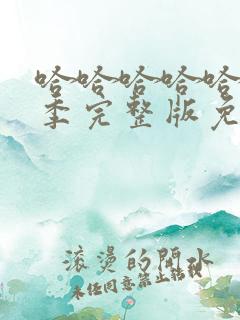 哈哈哈哈哈
季完整版免
滚烫的開水
未经同意禁止转载